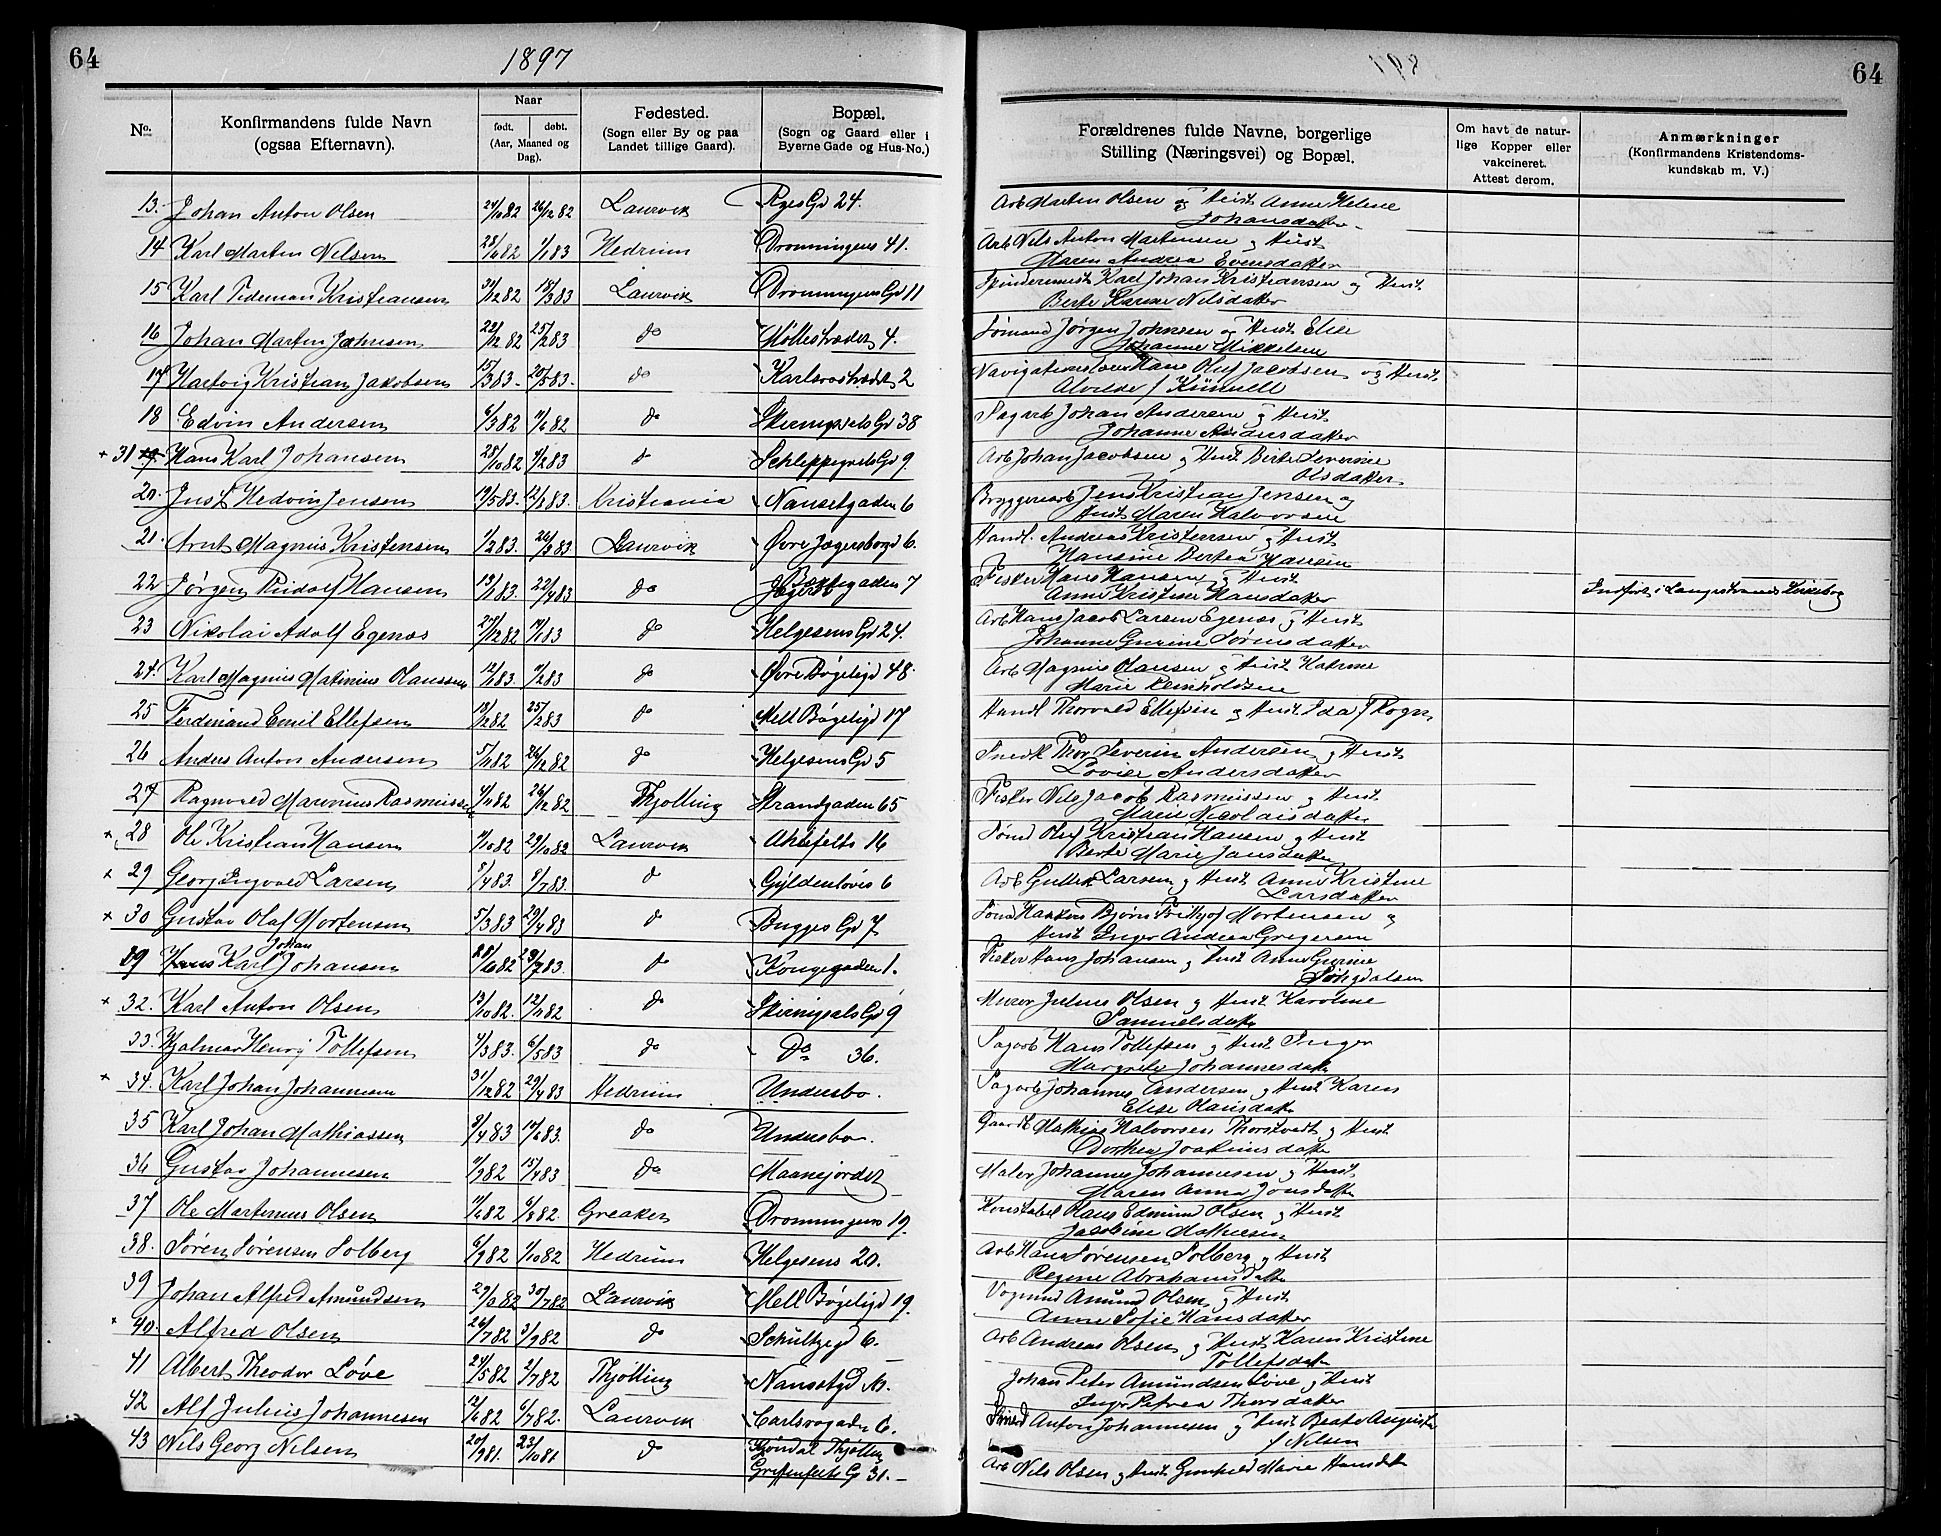 64
1897
No.
Konfirmandens fulde Navn
(ogsaa Efternavn).
Naar
født. døbt.
(Aar, Maaned og
Dag).
Fødested.
(Sogn eller By og paa
Landet tillige Gaard).
Bopæl.
(Sogn og Gaard eller i
Byerne Gade og Hus-No.)
13. Johan Anton Olsen 26/12 82 Laurvik Ryes Gd 24.
14 Karl Martin Nilsen 1/1 83 Hedrum Dronningens 41.
15 Karl Tideman Kristiansen 31/12 82 18/3 83 Laurvik Dronningens Gd 11
16 Johan Martin Johnsen 22/12 82 25/2 83 do Møllestrædet 4.
17 Hartvig Kristian Jakobsen 15/3 83. 20/5 83. do Karlsrostrædet 2
18 Edvin Andersen 6/3 82 11/6 82 do Skiringssals Gd 38
+ 31 Hans Karl Johansen 25/10 82 4/2 83 do Schleppegrels Gd 9
20. Just Hedvin Jensen Kristiania Nansetgaden 6
21. Arnt Magnus Kristensen 1/2 83. Laurvik Øvre Jegersborgd 6.
22 Jørgen Rudolf Hansen 22/4 83 do gaden 7
23 Nikolai Adolf Egenæs do Helgesens Gd 24.
24. Karl Magnus Matinius Olaussen do Øvre Bøgeligd 48.
25 Ferdinand Emil Ellefsen 25/2 83 do Mell Bøgeligd 17
26 Anders Anton Andersen 5/11 82 26/12 82 do Helgesens Gd 5
27 Ragnvald Marinius Rasmussen 4/11 82 26/12 82 Thjølling Strandgaden 65
+ 28 Ole Kristian Hansen 29/10 82 Laurvik Ahlefelts 16
+ 29 Georg Ingvald Larsen 8/7 83. do Gyldenløves 6
+ 30 Gustav Olaf Mortensen 5/3 83 29/4 83 do Bugges Gd 7
Johan
Karl Johansen do Kongegaden 1.
+ 32. Karl Anton Olsen 13/10 82. do Skiringsals Gd 9
33. Hjalmar Henrij Tollefsen 4/3 83. 6/5 83 do Do 36.
+ 34. Karl Johan Johannesen 31/12 82 29/4 83 Hedrum Undersbo.
35 Karl Johan Mathiassen 8/4 83 do Undersbo.
36 Gustav Johannesen do Maanejordet
37 Ole Martinius Olsen 11/6 82 6/8 82. Greaker Dronningens 19.
38. Søren Sørensen Solberg 6/9 82 1/10 82 Hedrum Helgesens 20.
39 Johan Alfred Amundsen 30/7 82 Laurvik Mell Bøgeligd 19.
+ 40. Alfred Olsen 26/7 82 3/9 82 do Schultzegd 6.
41 Albert Theodor Løve 24/5 82 2/7 82 Thjølling Nansetgd
42 Alf Julius Johannesen 6/7 82. Laurvik Carlsrogaden 6.
43 Nils Georg Nilsen 20/9 81. 23/10 81 do Thjølling
Griffenfelts G 31.-
64
Forældrenes fulde Navne, borgerlige
Stilling (Næringsvei) og Bopæl.
Om havt de natur-
lige Kopper eller
vakcineret.
Attest derom.
Anmærkninger
(Konfirmandens Kristendoms-
kundskab m. V.)
Arb Martin Olsen og Hust Anne Helene
Johansdatter
Arb Nils Anton Martinsen og Hust
Maren Andrea Evensdatter
Spinderimest Karl Johan Kristiansen og Hust
Berte Karine Nilsdatter
Sømand Jørgen Johnsen og Hust Elise
Johanne Mikkelsen
Navigationslærer Hans Oluf Jacobsen og Hust.
Alvilde f Kümmell
Sagarb Johan Andersen og Hust
Johanne Andersdatter
Arb Johan Jacobsen og Hust Berte Severine
Olsdatter
Bryggeriarb Jens Kristian Jensen og
Hust Maren Halvorsen
Handl. Andreas Kristensen og Hust
Hansine Bertea Hansen
Fisker Hans Hansen og Hust
Anne Kristine Hansdatter Indført i Langestrands Kirkebog
Arb Hans Jacob Larsen Egenæs og Hust
Johanne Gurine Sørensdatter
Arb Magnus Olausen og Hust Katrine
Marie Reinholdsen
Handl Thorvald Ellefsen og Hust Ida f Rogn
Snedk Thor Severin Andersen og Hust
Lovise Andersdatter
Fisker Nils Jacob Rasmussen og Hust
Marie Nicolaisdatter
Sømd Oluf Kristian Hansen og Hust
Berte Marie Jansdatter
Arb Gullik Larsen og Hust Anne Kristine
Larsdatter
Bjørn Fridtjof Mortensen og
Hust Inger Andrea Gregersen
Fisker Hans Johansen og Hust Anne Gurine
Songdalsen
Murer Julius Olsen og Hust Karoline
Samuelsdatter
Sagarb Hans Tollefsen og Hust Inger
Margrete Johannesdatter
Sagarb Johannes Andersen og Hust Karen
Elise Olausdatter
Gaardb Mathias Halvorsen Thorstvedt og Hust
Dorthea Joakimsdatter
Maler Johannes Johannesen og Hust
Maren Anna Jonsdatter
Konstabel Hans Edmund Olsen og Hust
Jacobine Mathisen
Arb Hans Sørensen Solberg og Hust
Regine Abrahamsdatter
Vognmd Amund Olsen og Hust
Anne Sofie Hansdatter
Arb Andreas Olsen og Hust Karen Kristine
Tollefsdatter
Johan Peter Amundsen Løve og Hust
Inger Petrea Thorsdatter
Smed Anton Johannesen og Hust Beate Augusta
f Nilsen
Arb Nils Olsen og Hust Gunhild Marie Hansdatt